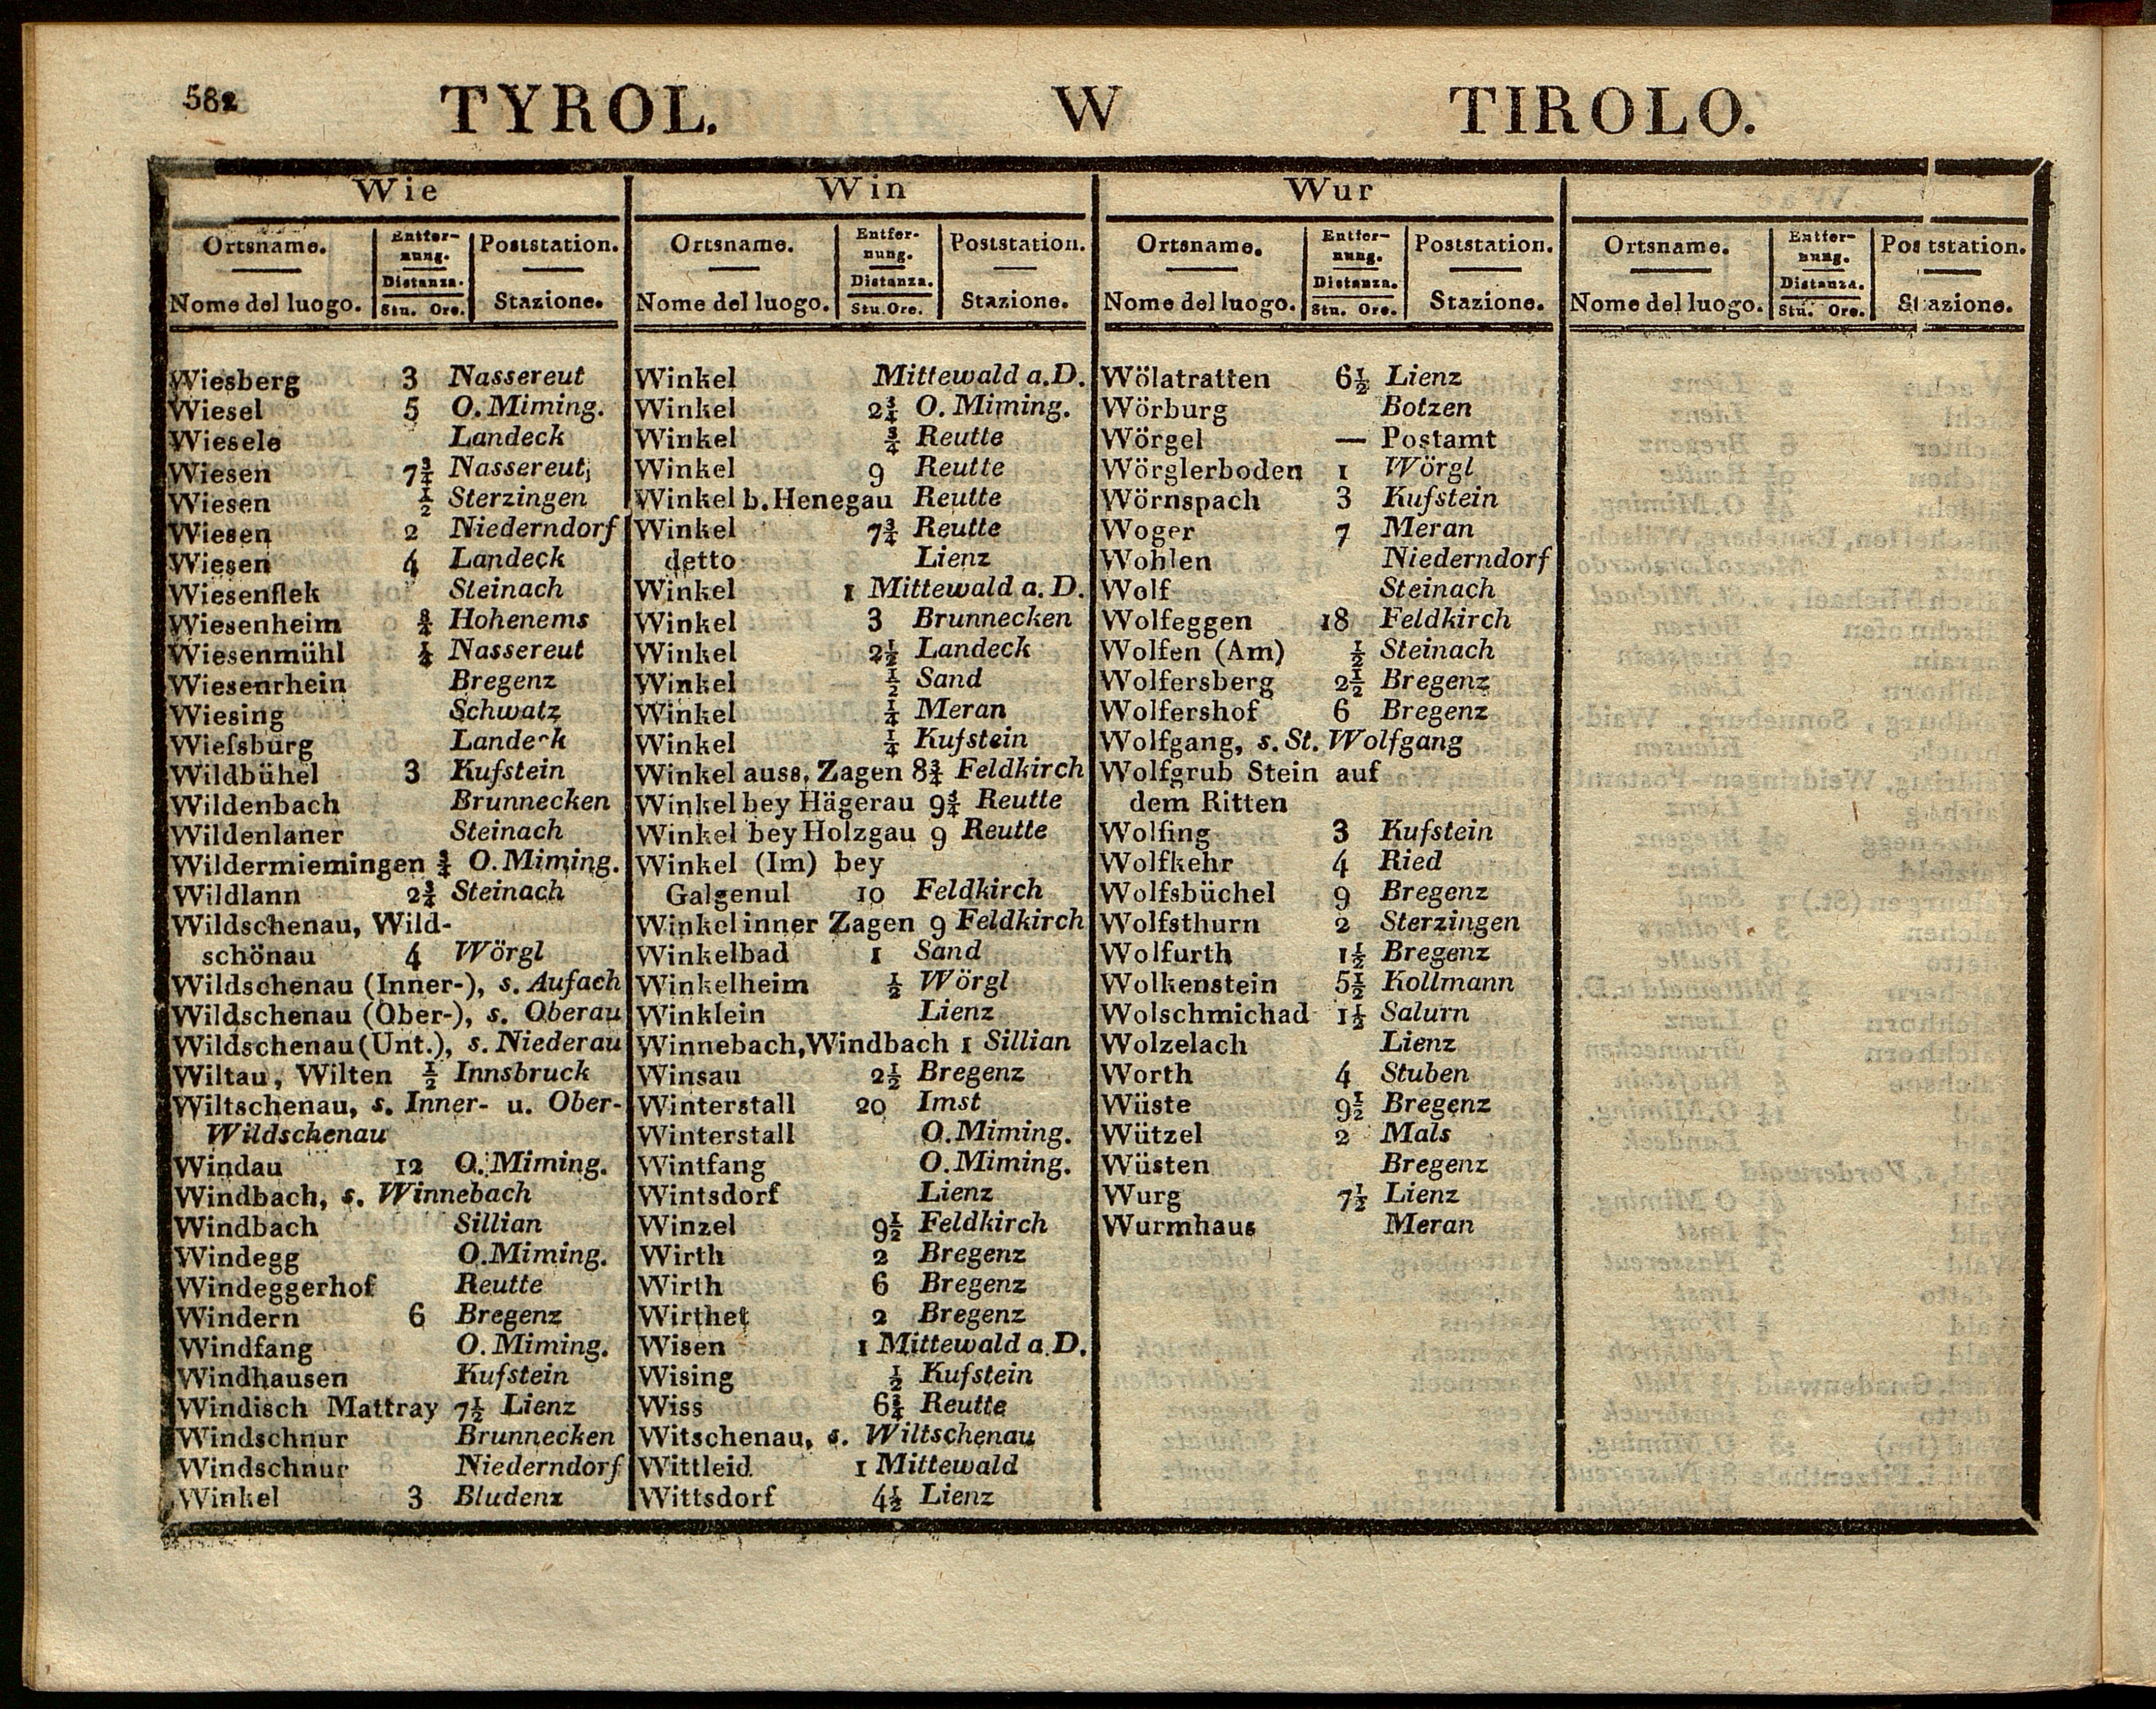 582 TYROL. W TIROLO.
Wie
Ortsname. Entfernung. Poststation.
Nome del luogo. Distanza. Stu. Ore. Stazione.
Wiesberg 3 Nassereut
Wiesel 5 O. Miming.
Wiesele Landeck
Wiesen 7¾ Nassereut
Wiesen ½ Sterzingen
Wiesen 2 Niederndorf
Wiesen 4 Landeck
Wiesenflek Steinach
Wiesenheim ¾ Hohenems
Wiesenmühl ¼ Nassereut
Wiesenrhein Bregenz
Wiesing Schwatz
Wieſsburg Landeck
Wildbühel 3 Kufstein
Wildenbach Brunnecken
Wildenlaner Steinach
Wildermiemingen ¾ O. Miming.
Wildlann 2¾ Steinach
Wildschenau, Wild-
schönau 4 Wörgl
Wildschenau (Inner-), s. Aufach
Wildschenau (Ober-), s. Oberau
Wildschenau (Unt.), s. Niederau
Wiltau, Wilten ½ Innsbruck
Wiltschenau, s. Inner- u. Ober-
Wildschenau
Windau 12 O. Miming.
Windbach, s. Winnebach
Windbach Sillian
Windegg O. Miming.
Windeggerhof Reutte
Windern 6 Bregenz
Windfang O. Miming.
Windhausen Kufstein
Windisch Mattray 7½ Lienz
Windschnur Brunnecken
Windschnur Niederndorf
Winkel 3 Bludenz
Win
Ortsname. Entfernung. Poststation.
Nome del luogo. Distanza. Stu. Ore. Stazione.
Winkel Mittewald a. D.
Winkel 2¾ O. Miming.
Winkel ¾ Reutte
Winkel 9 Reutte
Winkel b. Henegau Reutte
Winkel 7¾ Reutte
detto Lienz
Winkel 1 Mittewald a. D.
Winkel 3 Brunnecken
Winkel 2½ Landeck
Winkel ½ Sand
Winkel ¼ Meran
Winkel ¼ Kufstein
Winkel auss. Zagen 8¾ Feldkirch
Winkel bey Hägerau 9¾ Reutte
Winkel bey Holzgau 9 Reutte
Winkel (Im) bey
Galgenul 10 Feldkirch
Winkel inner Zagen 9 Feldkirch
Winkelbad 1 Sand
Winkelheim ½ Wörgl
Winklein Lienz
Winnebach, Windbach 1 Sillian
Winsau 2½ Bregenz
Winterstall 20 Imst
Winterstall O. Miming.
Wintfang O. Miming.
Wintsdorf Lienz
Winzel 9½ Feldkirch
Wirth 2 Bregenz
Wirth 6 Bregenz
Wirthet 2 Bregenz
Wisen 1 Mittewald a. D.
Wising ½ Kufstein
Wiss 6¾ Reutte
Witschenau, s. Wiltschenau
Wittleid 1 Mittewald
Wittsdorf 4½ Lienz
Wur
Ortsname. Entfernung. Poststation.
Nome del luogo. Distanza. Stu. Ore. Stazione.
Wölatratten 6½ Lienz
Wörburg Botzen
Wörgel — Postamt
Wörglerboden 1 Wörgl
Wörnspach 3 Kufstein
Woger 7 Meran
Wohlen Niederndorf
Wolf Steinach
Wolfeggen 18 Feldkirch
Wolfen (Am) ½ Steinach
Wolfersberg 2½ Bregenz
Wolfershof 6 Bregenz
Wolfgang, s. St. Wolfgang
Wolfgrub Stein auf
dem Ritten
Wolfing 3 Kufstein
Wolfkehr 4 Ried
Wolfsbüchel 9 Bregenz
Wolfsthurn 2 Sterzingen
Wolfurth 1½ Bregenz
Wolkenstein 5½ Kollmann
Wolschmichad 1½ Salurn
Wolzelach Lienz
Worth 4 Stuben
Wüste 9½ Bregenz
Wützel 2 Mals
Wüsten Bregenz
Wurg 7½ Lienz
Wurmhaus Meran
Ortsname. Entfernung. Poststation.
Nome del luogo. Distanza. Stu. Ore. Stazione.